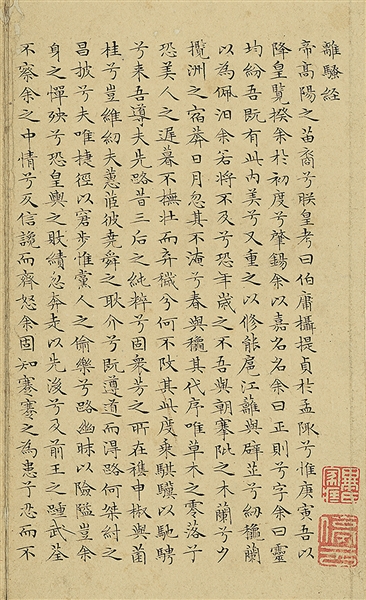 離騷經
帝高陽之苗裔兮朕皇考曰伯庸攝提貞於孟陬兮惟庚寅吾以
降皇覽揆余於初度兮肇錫余以嘉名名余曰正則兮字余曰靈
均紛吾既有此內美兮又重之以修能扈江離與辟芷兮紉穐蘭
以為佩汨余若將不及兮恐年歲之不吾與朝搴阰之木蘭兮夕
攬洲之宿莽日月忽其不淹兮春與穐其代序唯草木之零落兮
恐美人之遲暮不撫壯而弃穢兮何不改其此度乘騏驥以馳騁
兮来吾導夫先路昔三后之純粹兮固衆芳之所在襍申椒與菌
桂兮豈維紉夫蕙茝彼堯舜之耿介兮既遵道而得路何桀紂之
昌披兮夫唯捷徑以窘步惟黨人之偷樂兮路幽昧以險隘豈余
身之憚殃兮恐皇輿之敗績忽奔走以先後兮及前王之踵武荃
不察余之中情兮反信讒而齊怒余固知謇謇之為患兮忍而不